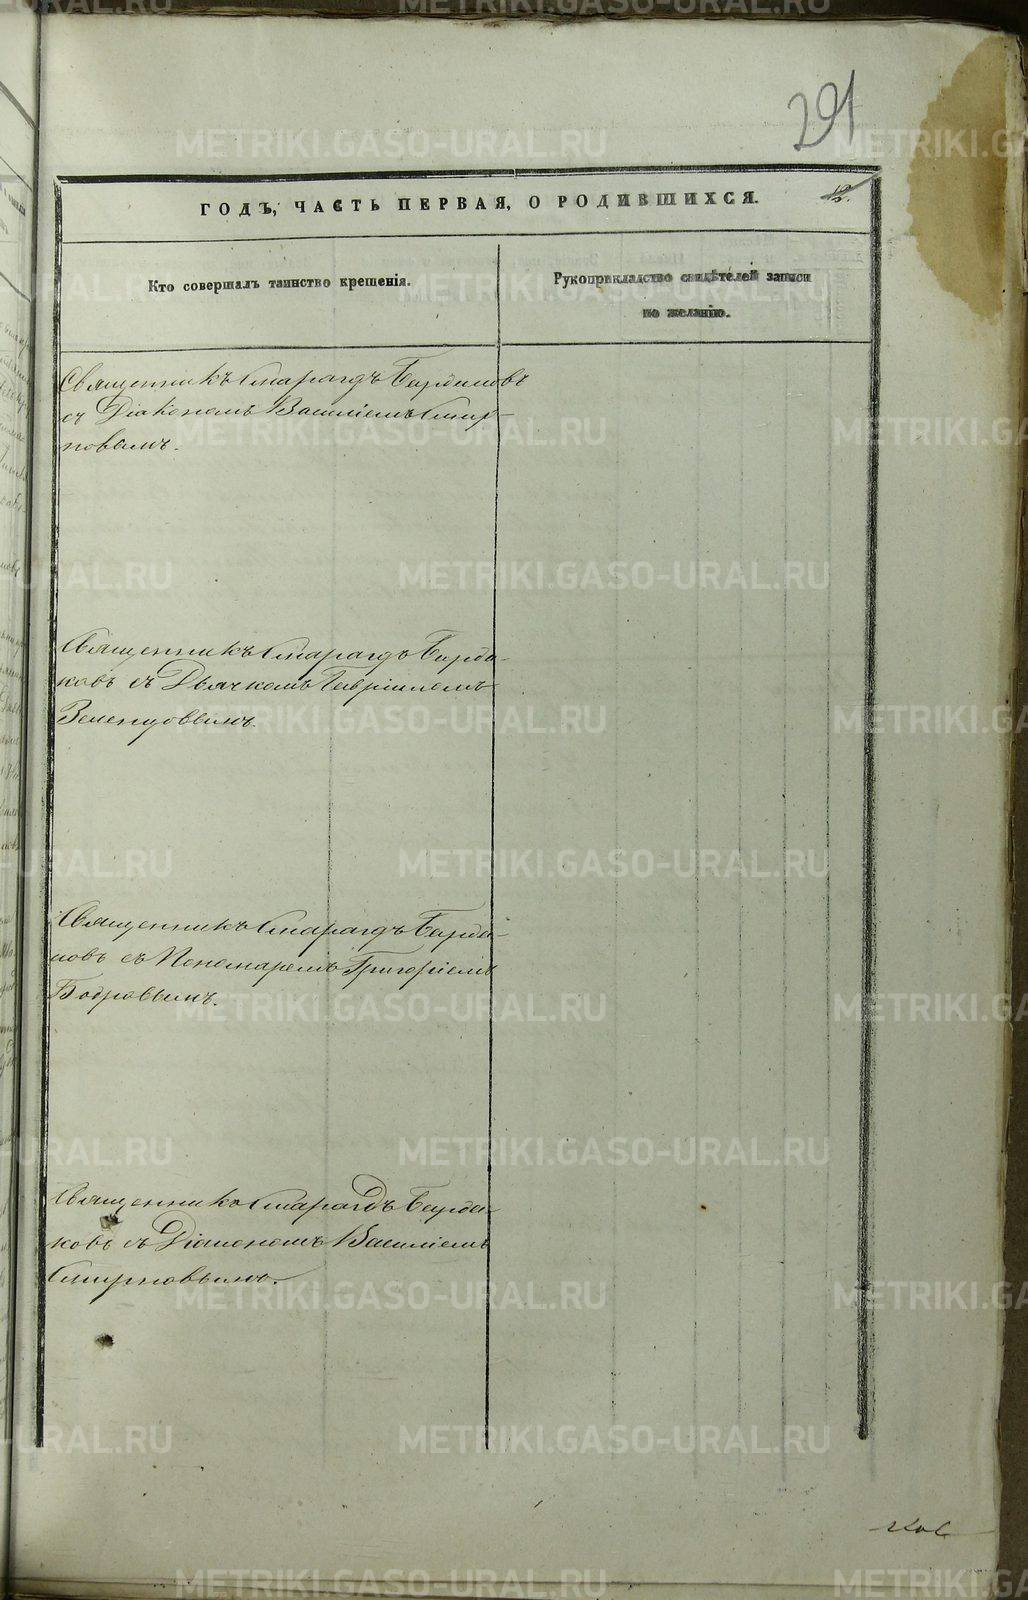 291
ГОДЪ, ЧАСТЬ ПЕРВАЯ, О РОДИВШИХСЯ.
12.
Кто совершалъ таинство крещенія.
Рукоприкладство свидѣтелей записи
по желанію.
Священникъ Смарагдъ
съ Діакономъ Василіемъ Смир-
новымъ.
Священникъ Смарагдъ
съ Дьячкомъ Гавріиломъ
Земенцовымъ.
Священникъ Смарагдъ
съ Пономаремъ Григоріемъ
Бобровымъ.
Священникъ Смарагдъ
съ Діакономъ Василіемъ
Смирновымъ.
METRIKI.GASO-URAL.RU